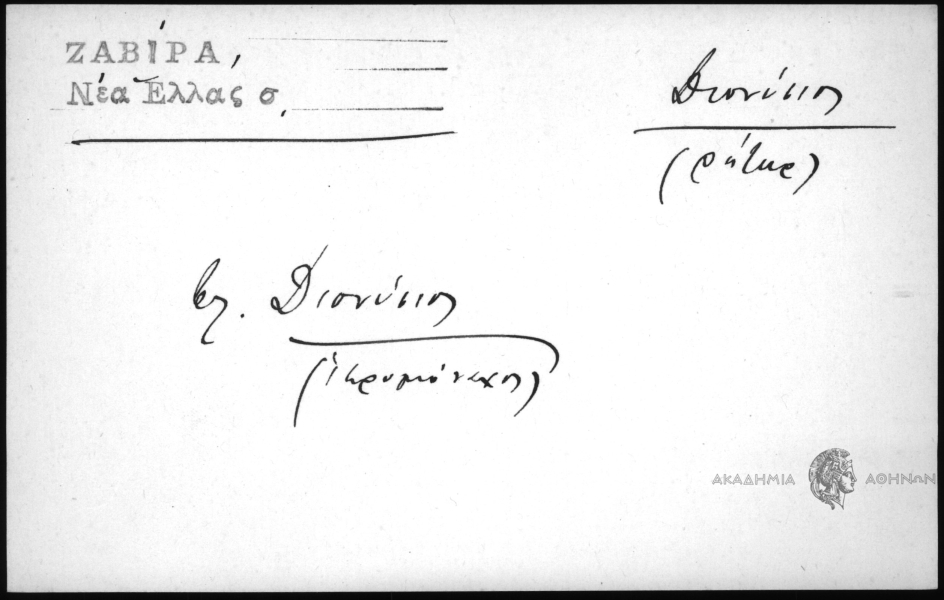 ΖΑΒΙΡΑ,
Νέα Ἑλλας σ.
Διονύσιος
(ρήτωρ)
βλ. Διονύσιος
(ἱερομόναχος)
ΑΚΑΔΗΜΙΑ ΑΘΗΝΩΝ